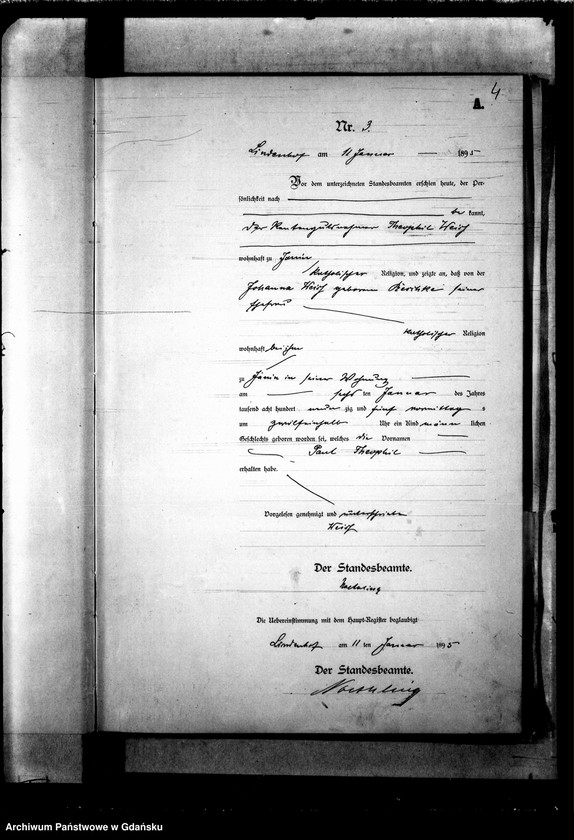 4
A.
Nr. 3.
Lindenhof am 11 Januar 1895
Vor dem unterzeichneten Standesbeamten erschien heute, der Per-
sönlichkeit nach
be kannt,
der Rentengutsnehmer Theophil
wohnhaft zu Jamin
katholischer Religion, und zeigte an, daß von der
Johanna geborenen seiner
Ehefrau
katholischer Religion
wohnhaft bei ihm
zu Jamin in seiner Wohnung
am sechs ten Januar des Jahres
tausend acht hundert neun zig und fünf vormittags
um zwölfeinhalb Uhr ein Kind männ lichen
Geschlechts geboren worden sei, welches die Vornamen
Paul Theophil
erhalten habe.
Vorgelesen genehmigt und unterschrieben
Der Standesbeamte.
Noetzling
Die Uebereinstimmung mit dem Haupt-Register beglaubigt
Lindenhof am 11 ten Januar 1895
Der Standesbeamte.
Noetzling
Archiwum Państwowe w Gdańsku